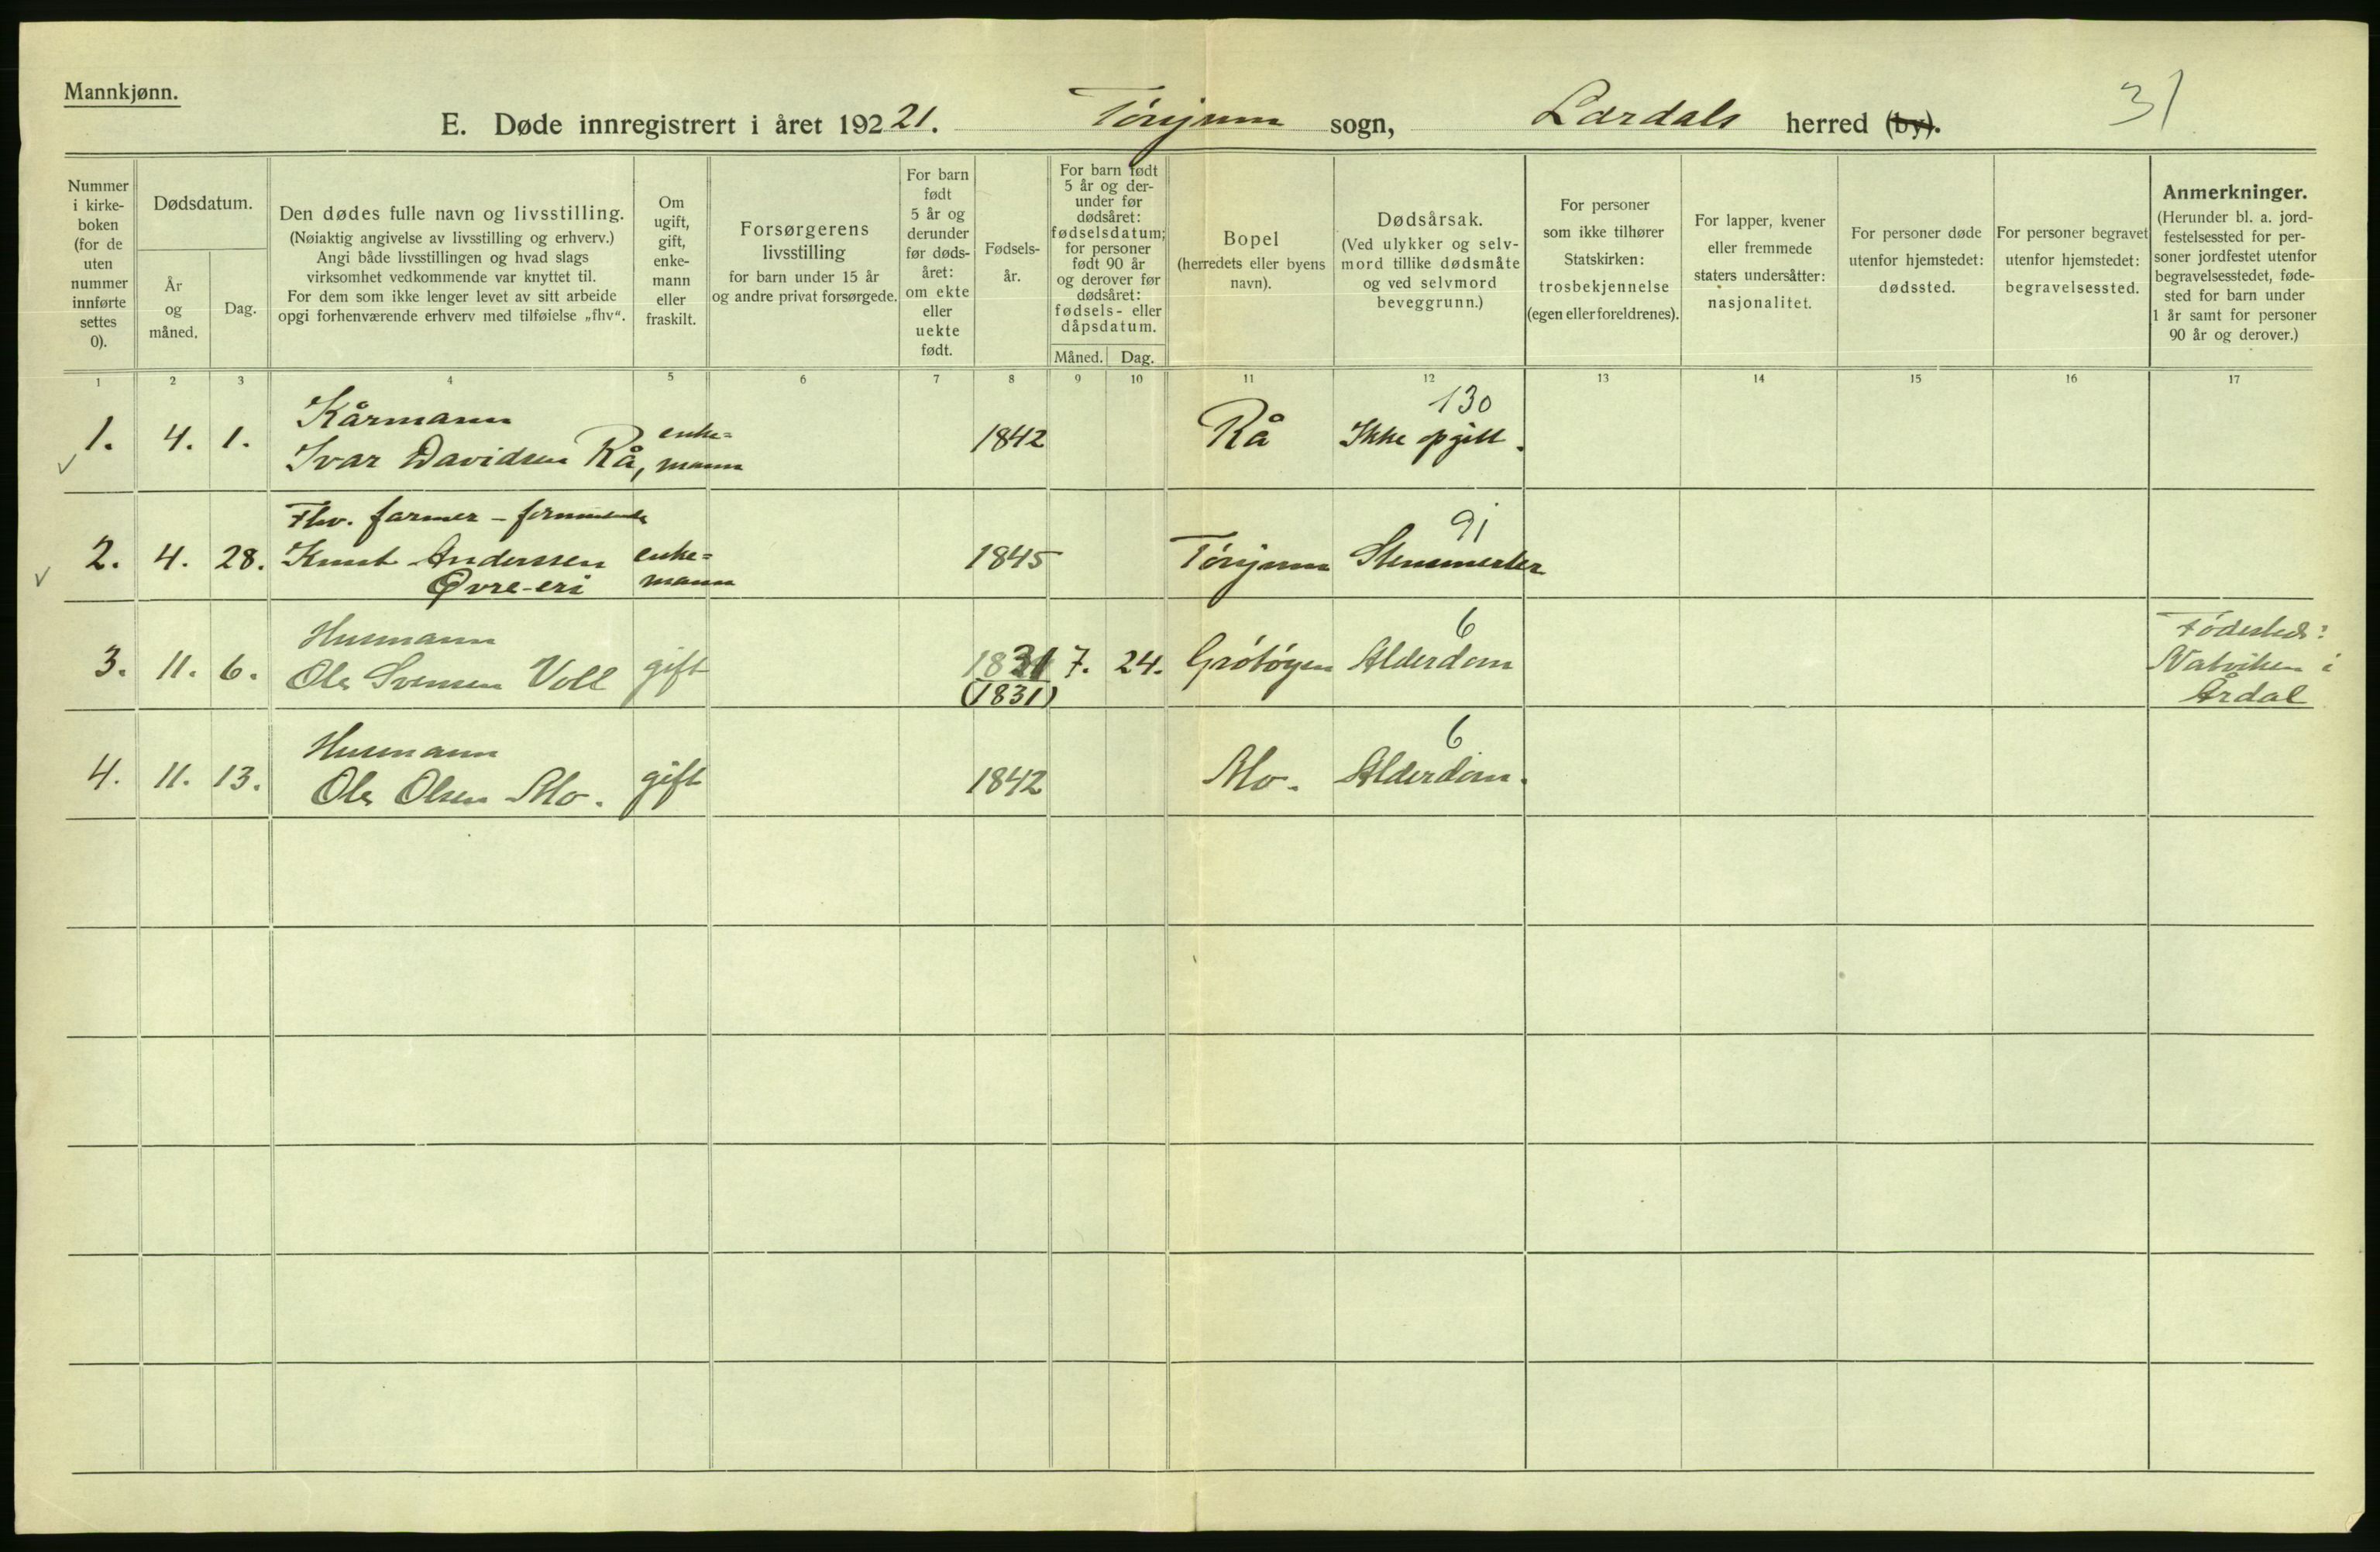 Mannkjønn.
31
E. Døde innregistrert i året 192 21. Tønjum sogn, Lærdals herred (by).
Nummer
i kirke-
boken
(for de
uten
nummer
innførte
settes
0).
Dødsdatum.
År
og
måned.
Dag.
Den dødes fulle navn og livsstilling.
(Nøiaktig angivelse av livsstilling og erhverv.)
Angi både livsstillingen og hvad slags
virksomhet vedkommende var knyttet til.
For dem som ikke lenger levet av sitt arbeide
opgi forhenværende erhverv med tilføielse „fhv“.
Om
ugift,
gift,
enke-
mann
eller
fraskilt.
Forsørgerens
livsstilling
for barn under 15 år
og andre privat forsørgede.
For barn
født
5 år og
derunder
før døds-
året:
om ekte
eller
uekte
født.
Fødsels-
år.
For barn født
5 år og der-
under før
dødsåret:
fødselsdatum;
for personer
født 90 år
og derover før
dødsåret:
fødsels- eller
dåpsdatum.
Måned. Dag.
Bopel
(herredets eller byens
navn).
Dødsårsak.
(Ved ulykker og selv-
mord tillike dødsmåte
og ved selvmord
beveggrunn.)
For personer
som ikke tilhører
Statskirken:
trosbekjennelse
(egen eller foreldrenes).
For lapper, kvener
eller fremmede
staters undersåtter:
nasjonalitet.
For personer døde
utenfor hjemstedet:
dødssted.
For personer begravet
utenfor hjemstedet:
begravelsessted.
Anmerkninger.
(Herunder bl. a. jord-
festelsessted for per-
soner jordfestet utenfor
begravelsesstedet, føde-
sted for barn under
1 år samt for personer
90 år og derover.)
1 2 3 4 5 6 7 8 9 10 11 12 13 14 15 16 17
Kårmann 130
1. 4. 1. Ivar Davidsen Rå, enke= mann 1842 Rå Ikke opgitt.
Fhv. farmer - 91
2. 4. 28. Knut Anderssen enke= 1845 Tønjum
Øvre-eri mann
Husmann 6 Fødested:
3. 11. 6. Ole Svensen Voll gift 1831 7. 24. Grøtøyen Alderdom Natviken i
(1831) Årdal
Husmann 6
4. 11. 13. Ole Olsen Mo. gift 1842 Mo. Alderdom.